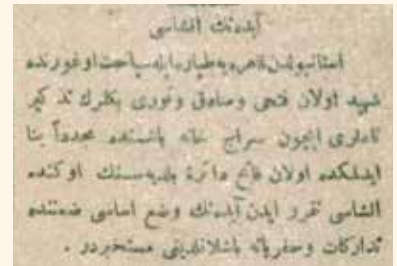 آبده‌نك انشاسی
استانبولدن قاهره‌یه طیاره ایله سیاحت اوغورنده
شهید اولان فتحی وصادق ونوری بكلرك تذكیر
نامداری ایچون سراج خانه باشنده مجدداً بنا
ایدلمكده اولان فاتح دائرهٔ بلدیه‌سنك اوكنده
انشاسی تقرر ایدن آبده‌نك وضع اساسی ضمننده
تداركات وحفریاته باشلاندیغی مستخبردر .